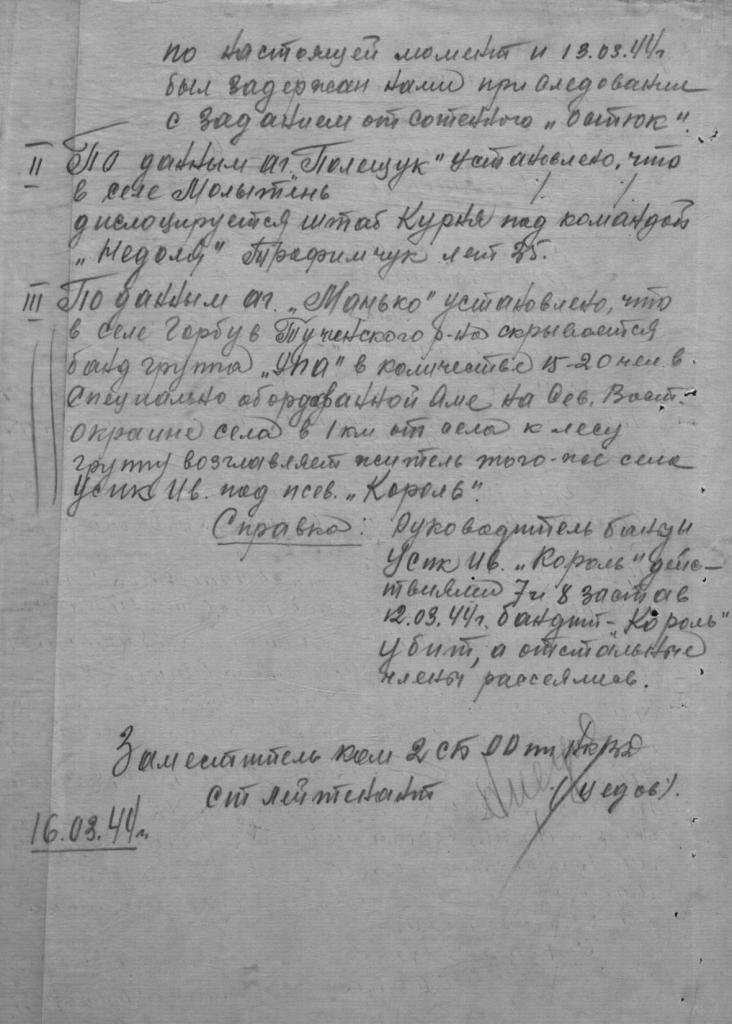 по настоящей момент и 13.03.44г
был задержан нами при следовании
с заданием от сотенного „Остюк".
II По данным аг. „Полещук" установлено, что
в селе Молытень
дислоцируется штаб Курня под командой
„Недоля" Трофимчук лет 25.
III По данным аг. „Манько" установлено, что
в селе Горбув Тученского р-на скрывается
банд группа „Упа" в количестве 15-20 чел. в
специально обордованной яме на Сев. Вост.
окраине села в 1 км от села к лесу
группу возглавляет житель того-же села
Усик Ив. под псев. „Король".
Справка: Руководитель банды
Усик Ив. „Король" дейс-
твиями 7 и 8 застав
12.03.44г. бандит- „Король"
убит, а отстальные
члены рассеялись.
Заместитель ком 2 СБ
ст лейтенант
16.03.44г.